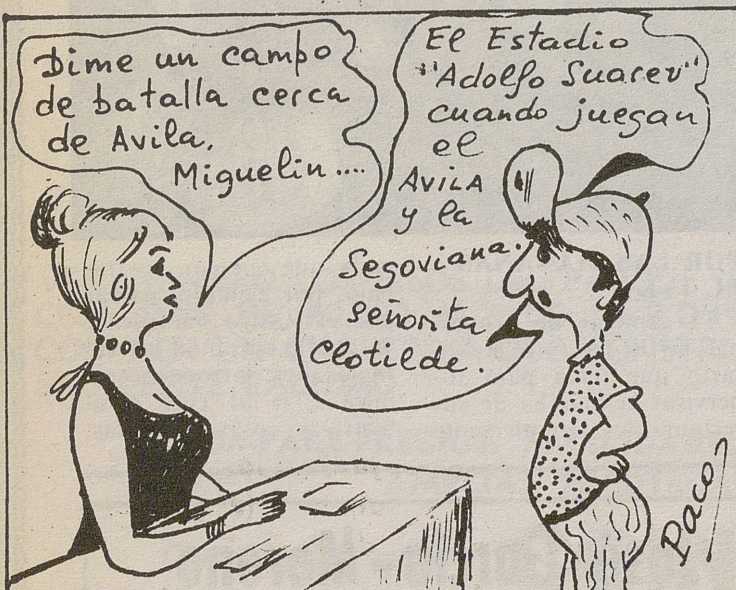 Dime un campo
de batalla cerca
de Avila,
Miguelin....
El Estadio
"Adolfo Suarez"
cuando juegan
el
AVILA
y la
Segoviana.
señorita
Clotilde.
Paco